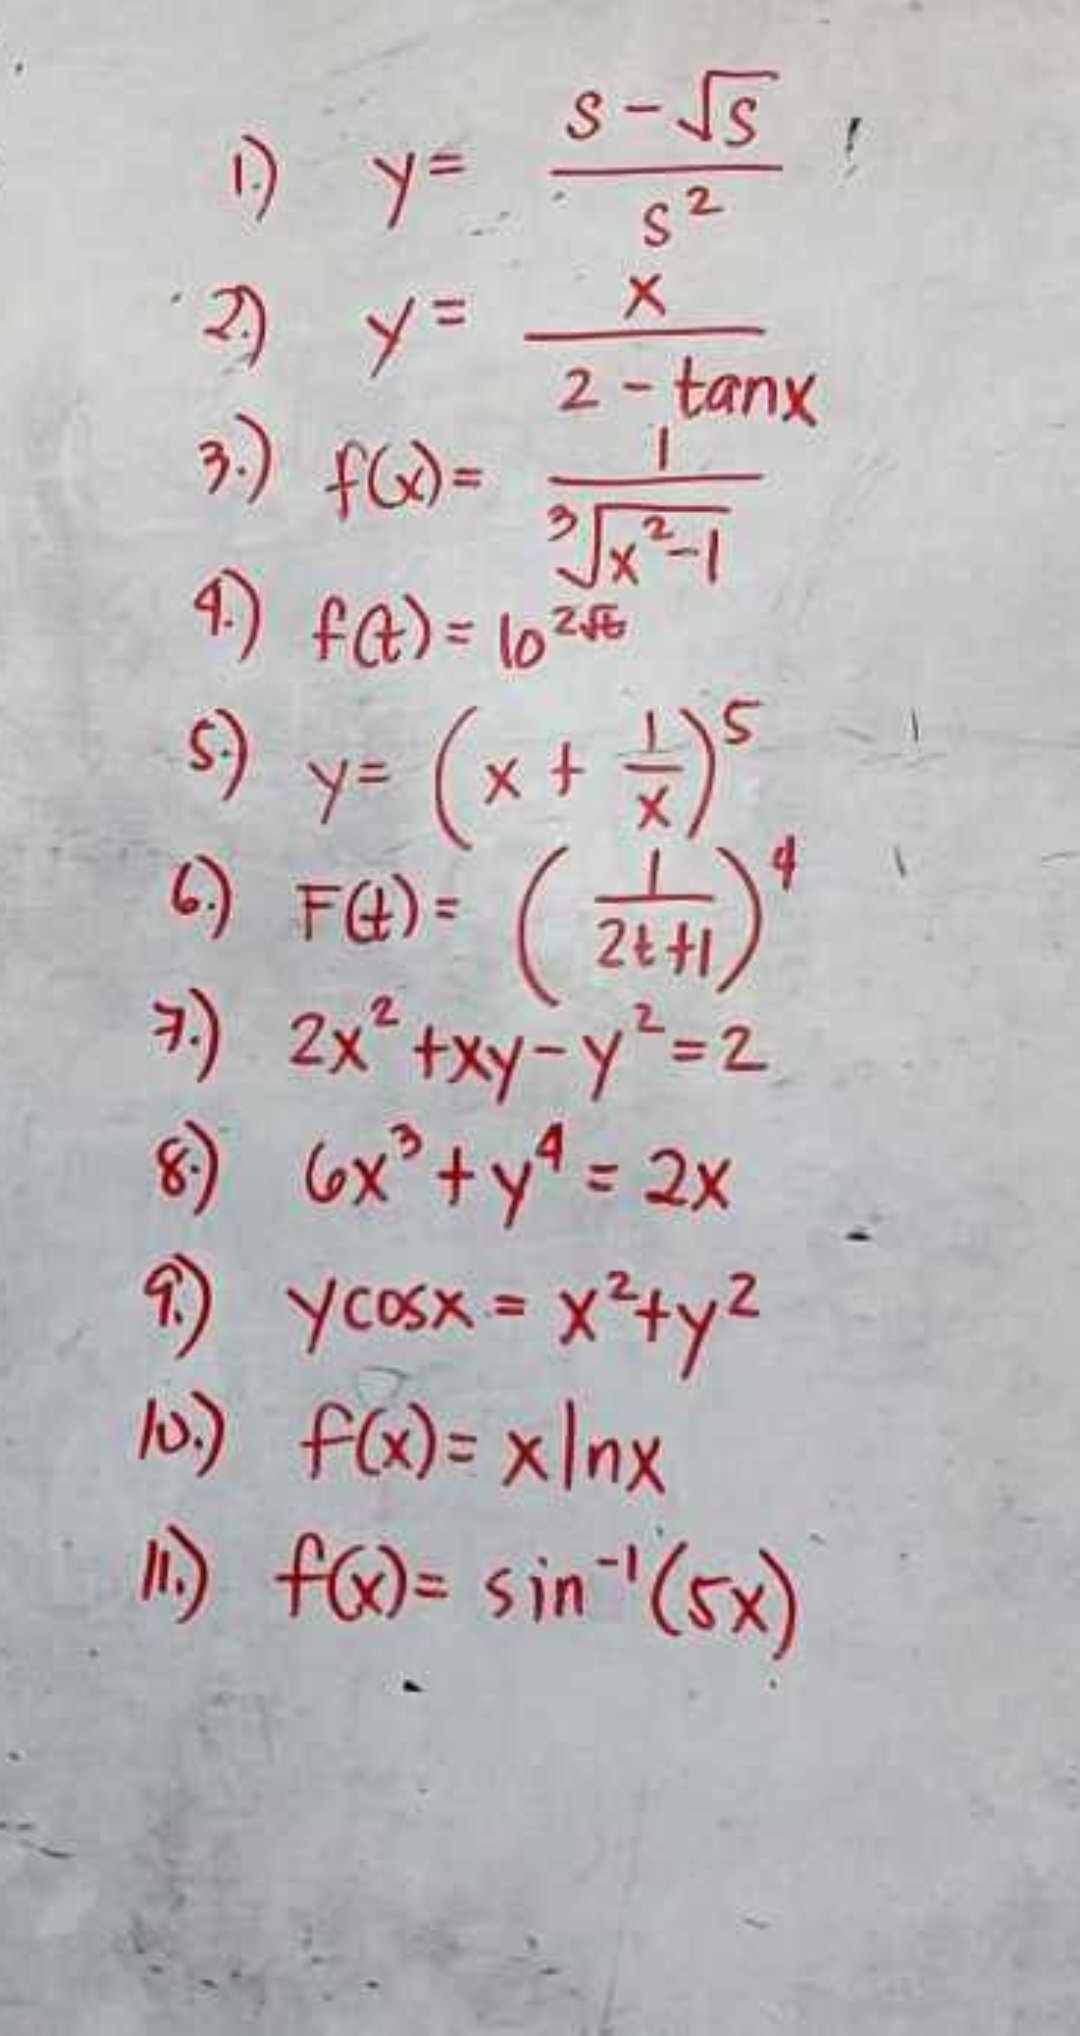 1.) y = (s - √s) / s²
2.) y = x / (2 - tanx)
3.) f(x) = 1 / ∛(x² - 1)
4.) f(t) = 10^(2√t)
5.) y = (x + 1/x)⁵
6.) F(t) = (1 / (2t + 1))⁴
7.) 2x² + xy - y² = 2
8.) 6x³ + y⁴ = 2x
9.) ycosx = x² + y²
10.) f(x) = xlnx
11.) f(x) = sin⁻¹(5x)